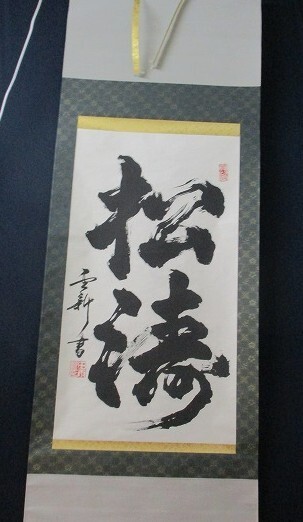 松濤
雲新書